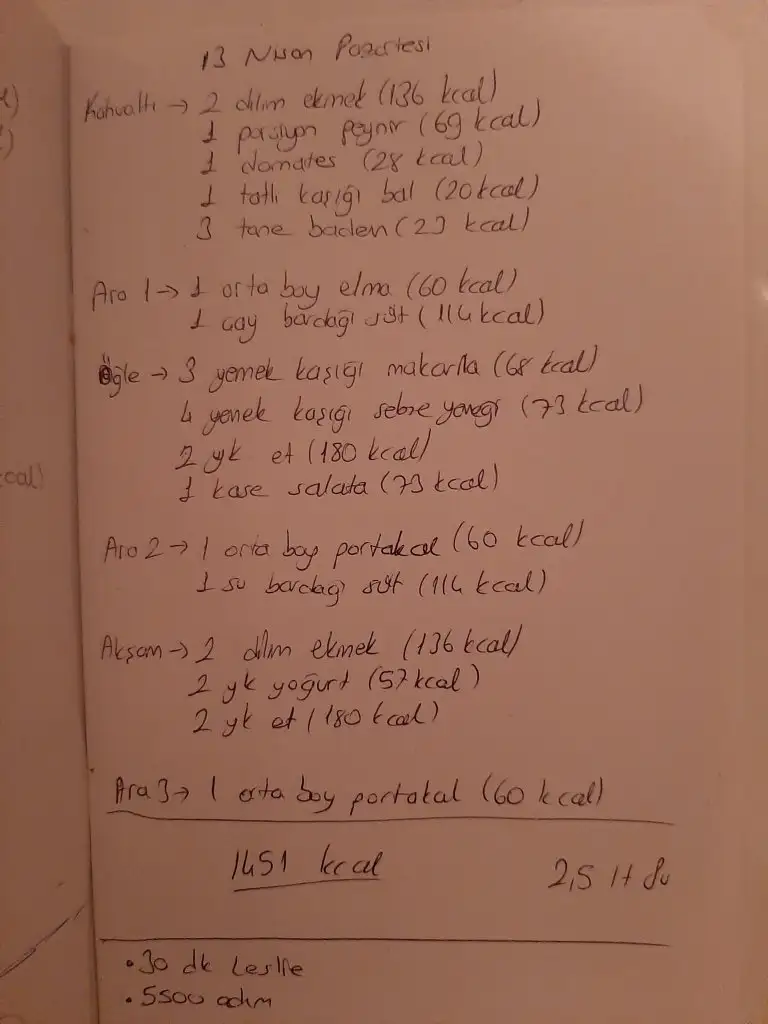 13 Nisan Pazartesi
Kahvaltı → 2 dilim ekmek (136 kcal)
1 porsiyon peynir (69 kcal)
1 domates (28 kcal)
1 tatlı kaşığı bal (20 kcal)
3 tane badem (23 kcal)
Ara 1 → 1 orta boy elma (60 kcal)
1 çay bardağı süt (114 kcal)
Öğle → 3 yemek kaşığı makarna (68 kcal)
4 yemek kaşığı sebze yemeği (73 kcal)
2 yk et (180 kcal)
1 kase salata (73 kcal)
Ara 2 → 1 orta boy portakal (60 kcal)
1 su bardağı süt (114 kcal)
Akşam → 2 dilim ekmek (136 kcal)
2 yk yoğurt (57 kcal)
2 yk et (180 kcal)
Ara 3 → 1 orta boy portakal (60 kcal)
1451 kcal 2,5 lt su
• 30 dk Leslie
• 5500 adım